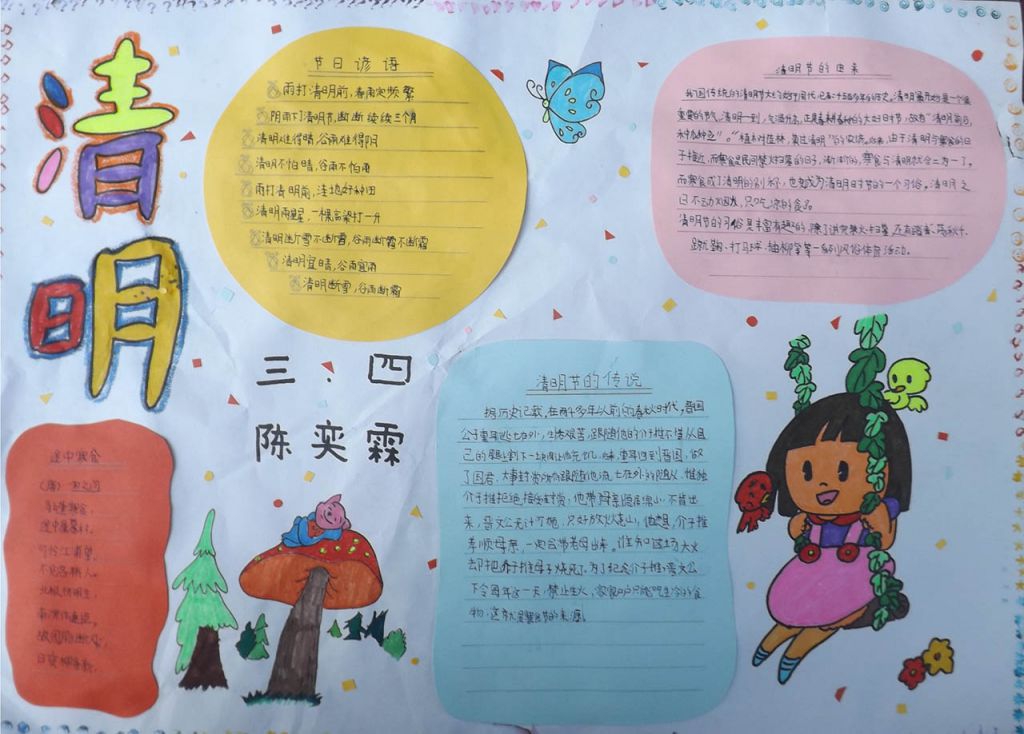 清明
节日谚语
雨打清明前,春雨定频繁
阴雨下清明节,断断续续三个月
清明难得晴,谷雨难得阴
清明不怕晴,谷雨不怕雨
雨打清明前,洼地好种田
清明雨星星,一棵高粱打一升
清明断雪不断雪,谷雨断霜不断霜
清明宜晴,谷雨宜雨
清明断雪,谷雨断霜
清明节的由来
我国传统的清明节大约始于周代,已有二千五百多年的历史。清明最开始是一个很
重要的节气,清明一到,气温升高,正是春耕春种的大好时节,故有“清明前后,
种瓜种豆”。“植树造林,莫过清明”的农谚。后来,由于清明与寒食的日
子接近,而寒食是民间禁火扫墓的日子,渐渐的,寒食与清明就合二为一了,
而寒食成了清明的别称,也变成为清明时节的一个习俗。清明之
日不动烟火,只吃凉的食品
清明节的习俗是丰富有趣的,除了讲究禁火扫墓,还有踏青、荡秋千、
蹴鞠、打马球、插柳等一系列风俗体育活动。
三.四
陈奕霖
清明节的传说
据历史记载,在两千多年以前的春秋时代,晋国
公子重耳逃亡在外,生活艰苦,跟随他的介子推不惜从自
己的腿上割下一块肉让他充饥。后来,重耳回到晋国,做
了国君,大事封赏所有跟随他流亡在外的随从,惟独
介子推拒绝接受封赏,他带母亲隐居绵山,不肯出
来,晋文公无计可施,只好放火烧山,他想,介子推
孝顺母亲,一定会带老母出来。谁知这场大火
却把介子推母子烧死了,为了纪念介子推,晋文公
下令每年这一天,禁止生火,家家户户只能吃生冷的食
物,这就是寒食节的来源。
途中寒食
(唐)宋之问
马上逢寒食,
途中属暮春。
可怜江浦望,
不见洛桥人。
北极怀明主,
南溟作逐臣。
故园肠断处,
日夜柳条新。